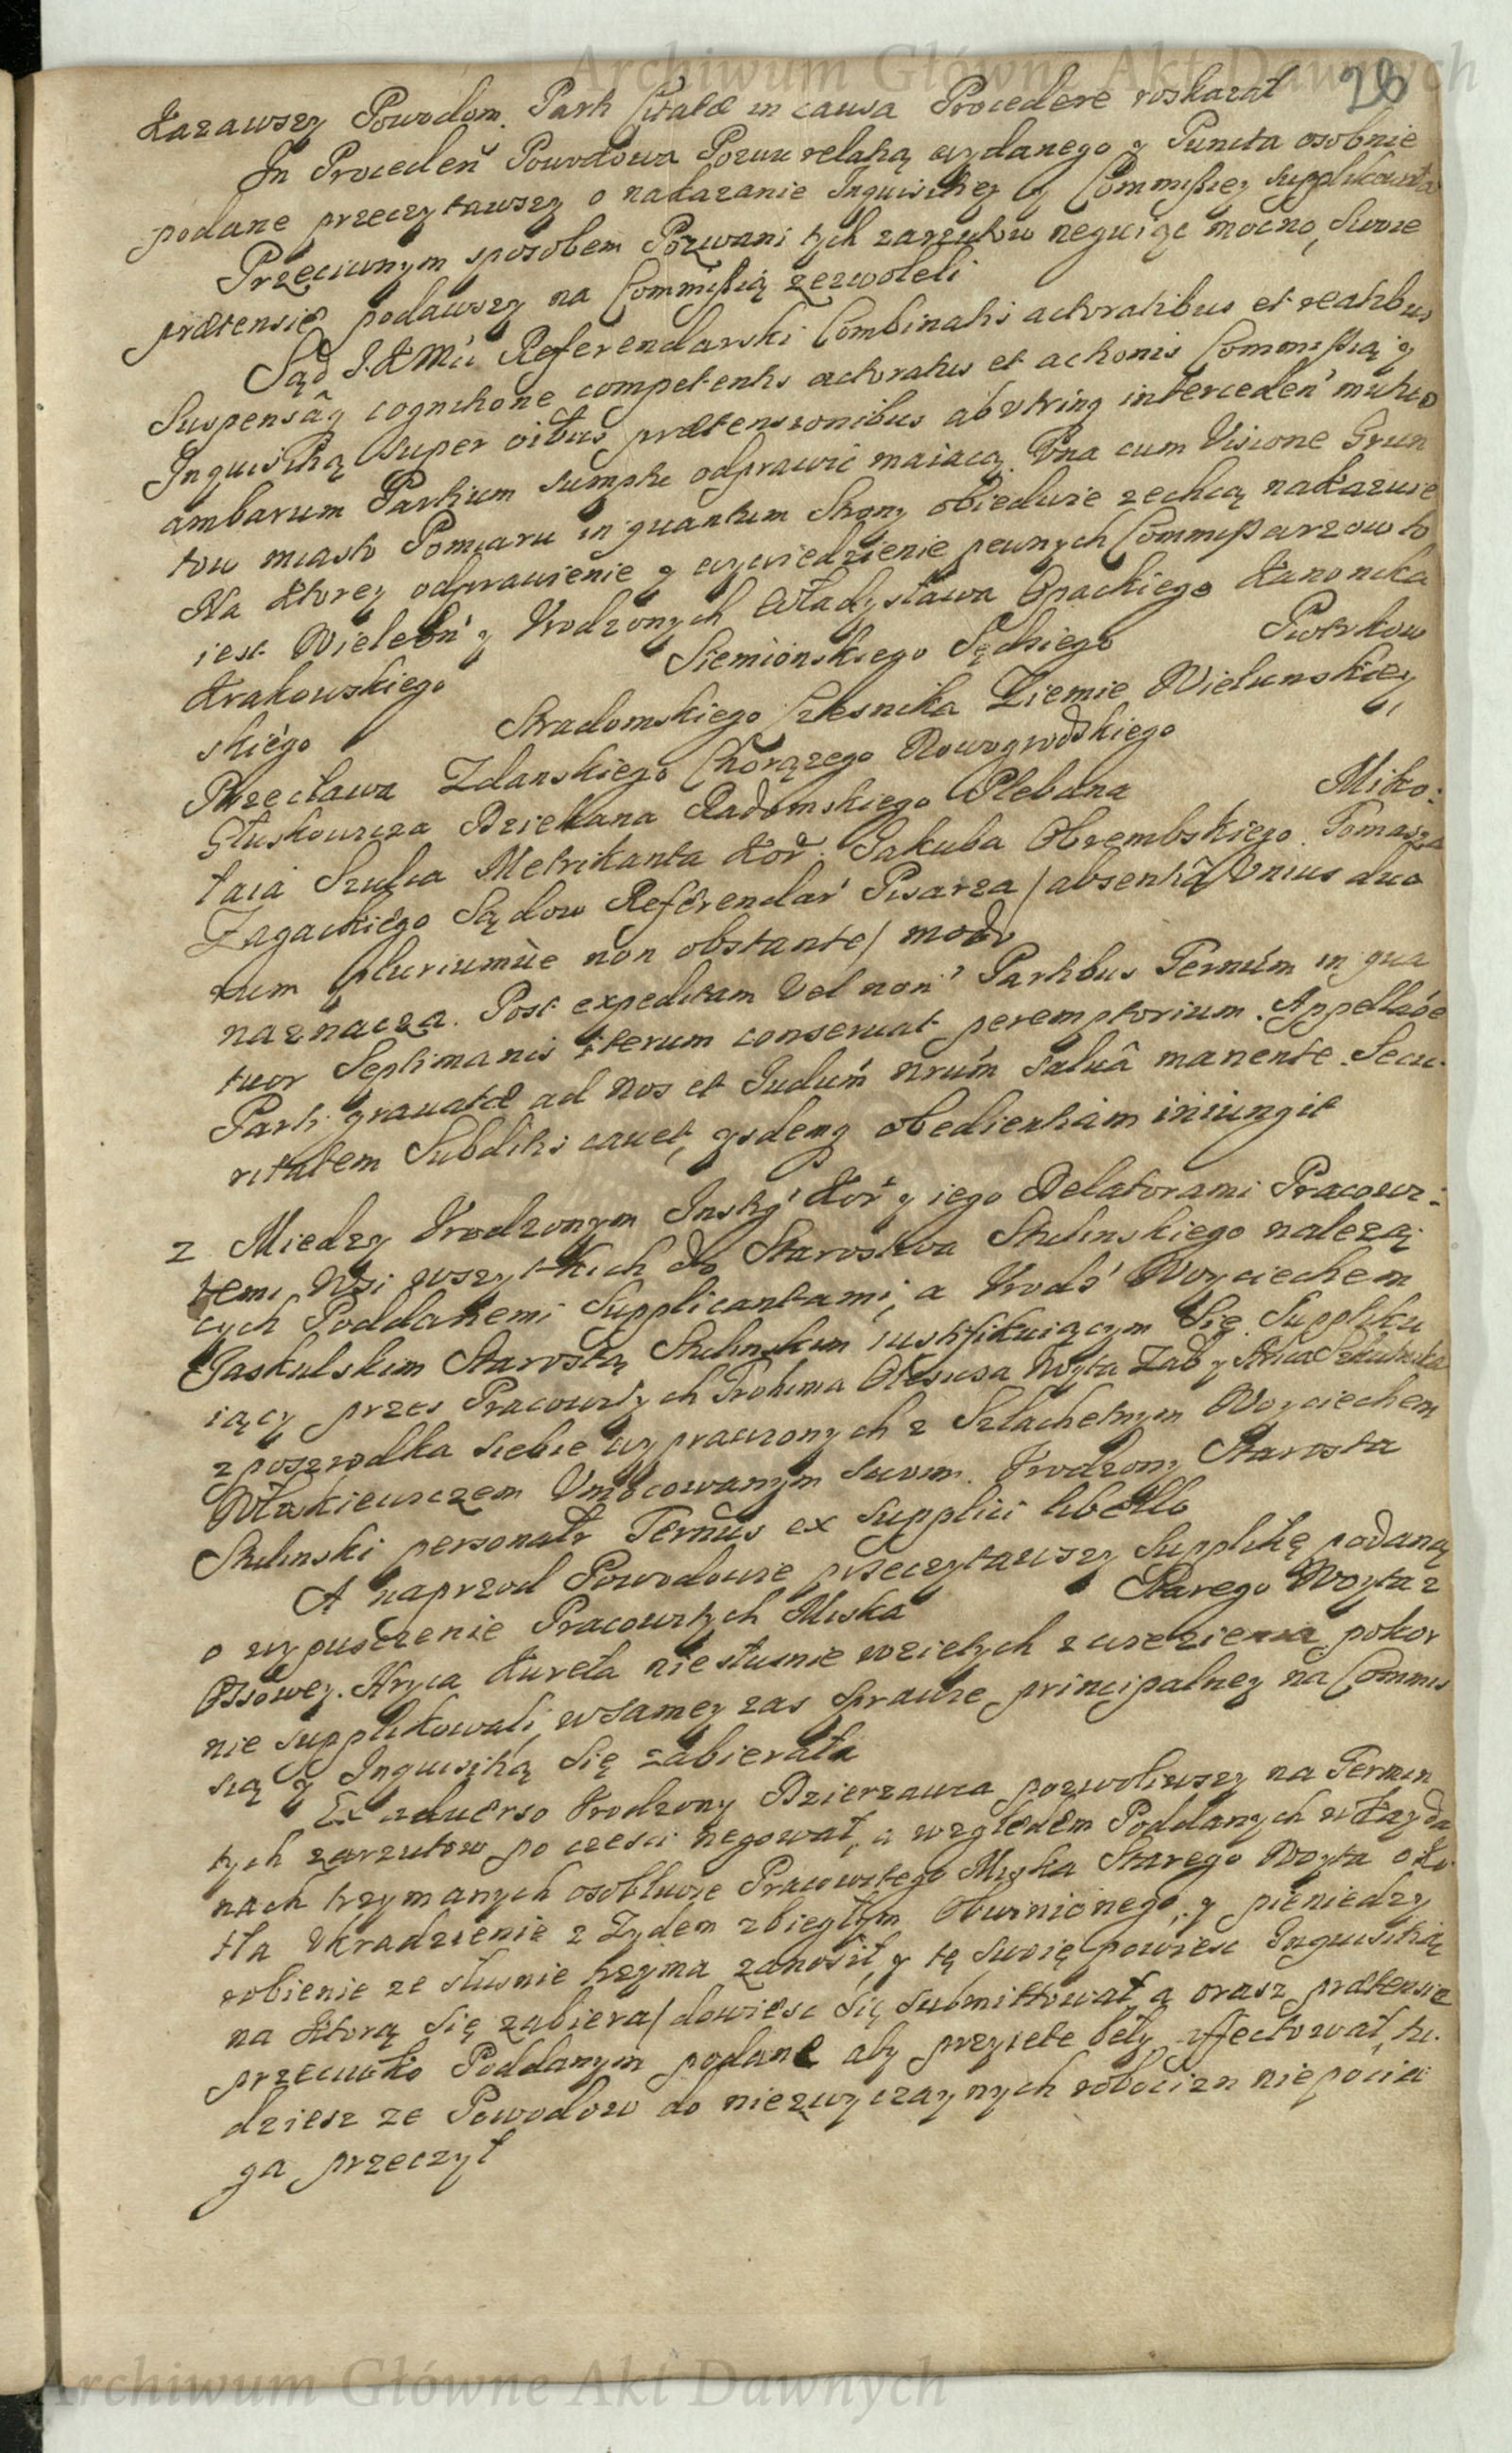 Archiwum Główne Akt Dawnych
26
kazawszy Powodom Parti Citatæ in causa Procedere roskazał
In Procedeń Powodowa Pozwu relatią wydanego y Puncta osobnie
podane przeczytawszy o nakazanie Inquisitiey y Commissiey Supplikowała
Przeciwnym sposobem Pozwani tych zarzutow neguiąc mocno, Swoie
prætensie podawszy na Commissią zezwoleli
Sąd J.K.Mći Referendarski Combinatis actoratibus et reatibus
Suspensâq cognitione competentis actoratus et actionis Commissią y
Inquisitią super oibus prætensionibus abutrinq intercedeń mutuo
ambarum Partium sumptu odprawić maiącą. Una cum Visione Grun
tow miasto Pomiaru in quantum Strony obiedwie zechcą nakazuie
Na ktorey odprawienie y wywiedzienie pewnych Commissarzow to
iest Wielebń y Urodzonych Władysława Opackiego Kanonika
Krakowskiego Siemiońskiego Sędziego Piotrkow
skiego Stradomskiego Czesnika Ziemie Wielunskiey
Przecława Zdanskiego Chorązego Nowogrodskiego
Głuskowicza Dziekana Radomskiego Plebana Miko:
łaia Szulca Metrikanta Kor: Jakuba Obrembskiego. Tomasza
Zagackiego Sądow Referendar Pisarza / absentiâ Unius duo
rum pluriumùe non obstante / modo
naznacza. Post expeditam vel non Partibus Termúm in qua
tuor Septimanis iterum conseruat peremptorium. Appellaóe
Parti grauatæ ad Nos et Judiúm nrúm saluâ manente. Secu:
ritatem Subditis cauet, ysdemq obedientiam iniungit
2 Miedzy Urodzonym Instyˊ Kor y iego Delatorami Pracowi:
temi Wsi wszytkich do Starostwa Stulinskiego nalezą:
cych Poddanemi Supplicantami, a Urodź Woyciechem
Jaskulskim Starostą Stulinskim iustifikuiącym Się. Suppliku
iący przes Pracowitych Prokima Oleśiesa Woyta
zposzrodka siebie wyprawionych z Szlachetnym Woyciechem
Witakiewiczem Umocowanym swoim. Urodzony Starosta
Stulinski personalr Termús ex supplici libello
A naprzod Powodowie przeczytawszy Supplikę podaną
o wypusczenie Pracowitych Miska Starego Woyta z
Ossowey. Hryca Kureła niesłusnie wzietych z wiezienia pokor
nie supplikowali, w samey zas sprawie principalney na Commis
sią y Inquisitią się zabierała
Ex aduerso Urodzony Dzierzawca pozwoliwszy na Termin
tych zarzutow po czesci negował, a wzgledem Poddanych w kayda
nach trzymanych osobliwie Pracowitego Miska Starego Woyta o ko
tła Ukradzienie z Zydem zbiegłym Obwinionego, y pieniedzy
robienie ze słusnie trzyma zanosił, y tę swoię powiesc Inquisitią
na ktorą się zabiera / dowiesc się submittował, a orasz prætensie
przeciwko Poddanym podane aby przyiete beły affectował, tu:
dziesz ze Powodow do niezwyczaynych robocizn niepocia
ga przeczył
Archiwum Główne Akt Dawnych